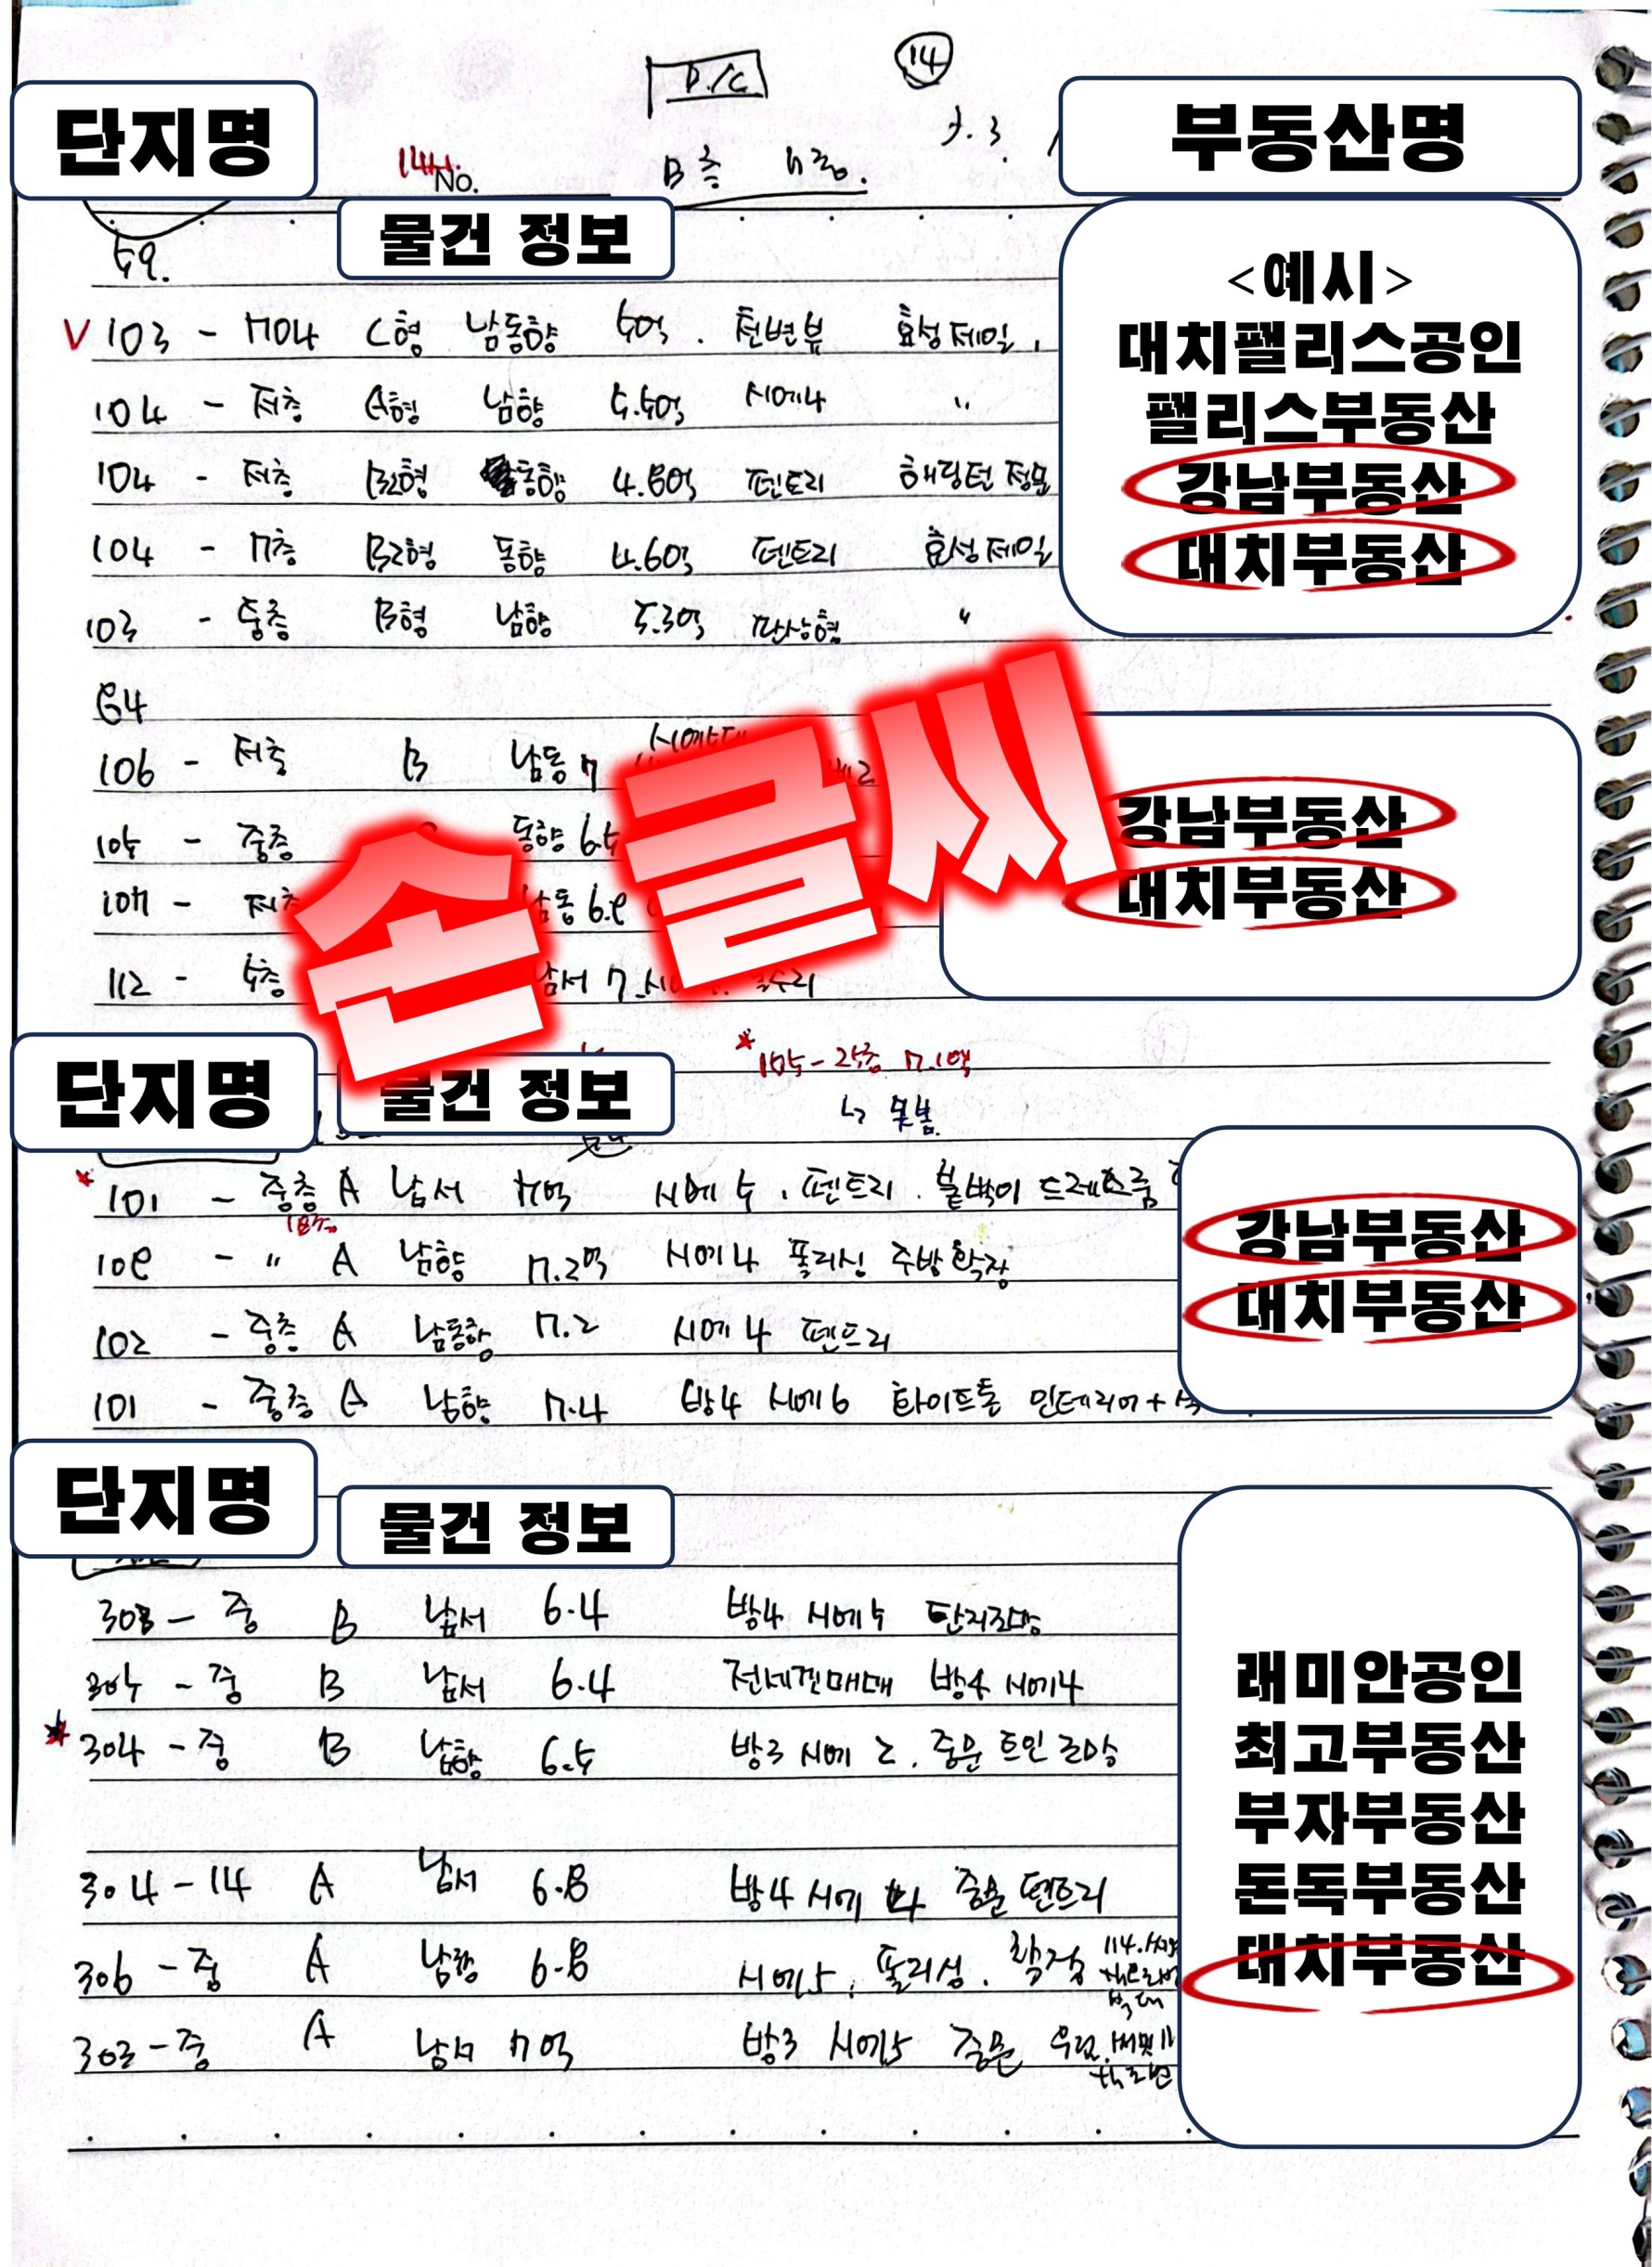 P/C
14
단지명
부동산명
No.
B층
물건 정보
59.
<예시>
V 103 - 704 C형 남동향 5억. 천변뷰 효성제일.
대치팰리스공인
104 - 저층 A형 남향 5.5억 시에4 "
팰리스부동산
104 - 저층 B2형 동향 4.8억 펜트리 해링턴 정문
강남부동산
104 - 7층 B2형 동향 4.6억 펜트리 효성제일
대치부동산
103 - 중층 B형 남향 5.3억 판상형 "
84
106 - 저층 B 남동 7
강남부동산
105 - 중층 동향 6.5
대치부동산
107 - 저층 남동 6.8
112 - 5층 남서 7
손글씨
*105 - 25층 7.1억
↳ 못봄.
단지명
물건 정보
*101 - 중층 A 남서 7억 시에5. 펜트리. 붙박이 드레스룸
18층
강남부동산
108 - " A 남향 7.2억 시에4 폴리싱 주방확장
대치부동산
102 - 중층 A 남동향 7.2 시에4 펜트리
101 - 중층 A 남향 7.4 방4 시에6 화이트톤 인테리어+
단지명
물건 정보
303 - 중 B 남서 6.4 방4 시에5 단지조망
래미안공인
305 - 중 B 남서 6.4 전세낀매매 방4 시에4
최고부동산
*304 - 중 B 남향 6.5 방3 시에2. 중문 트인조망
부자부동산
304 - 14 A 남서 6.8 방4 시에4 중문 펜트리
돈독부동산
306 - 중 A 남향 6.8 시에5. 폴리싱. 확장
대치부동산
303 - 중 A 남서 7억 방3 시에5 중문